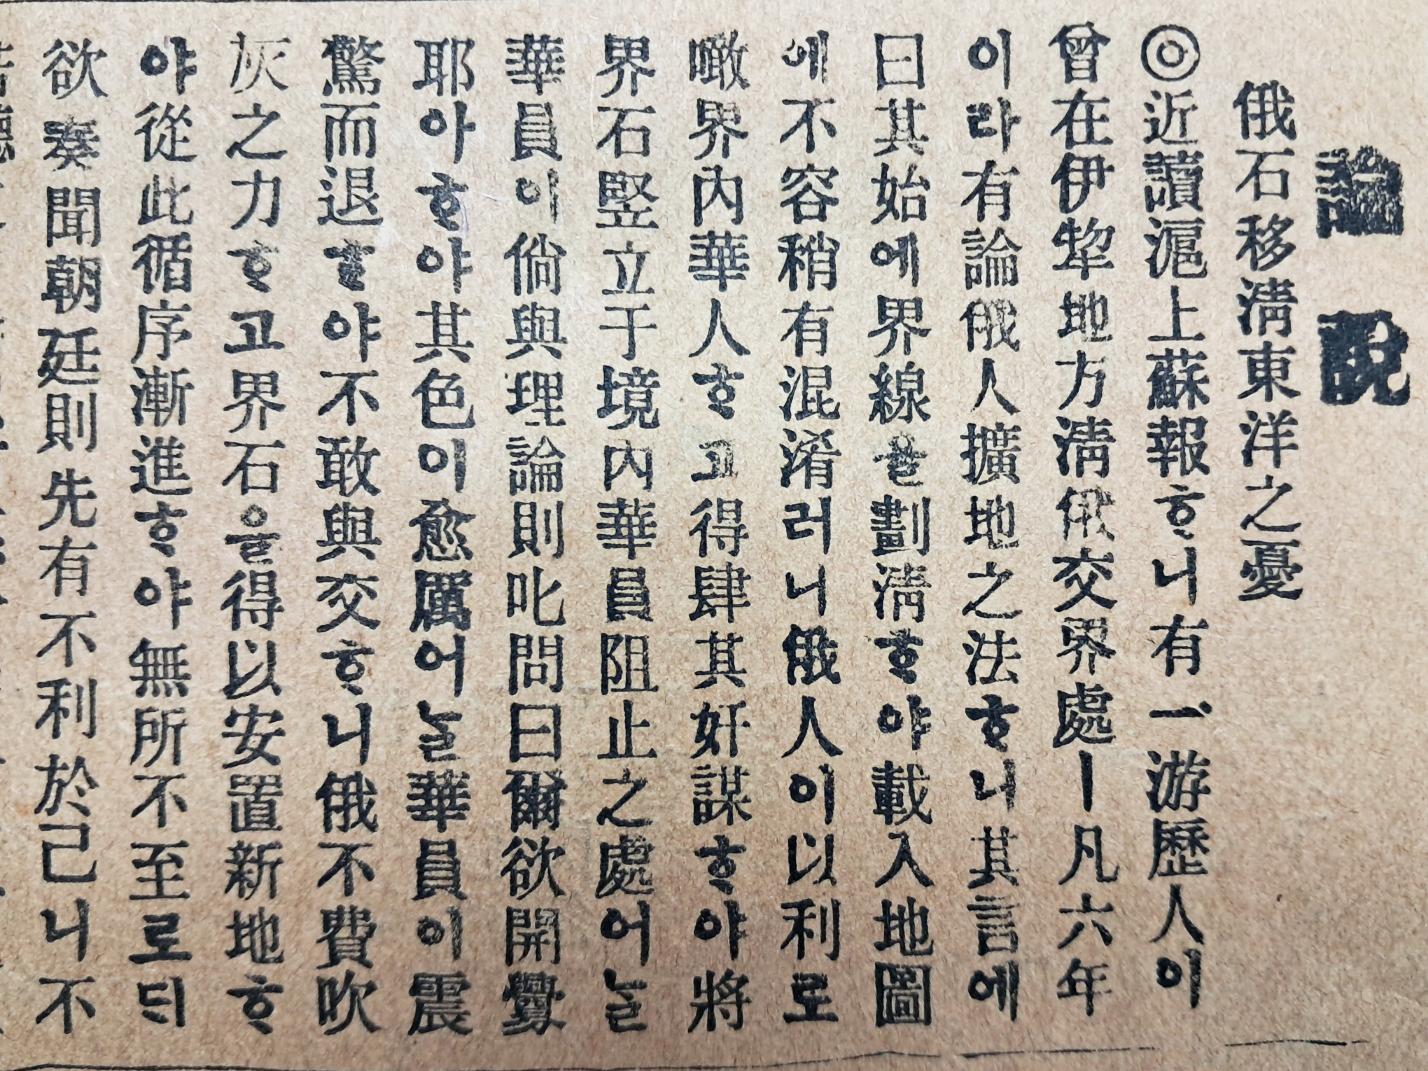 論說
俄石移淸東洋之憂
◎近讀滬上蘇報ᄒᆞ니有一游歷人이
曾在伊犂地方淸俄交界處ㅣ凡六年
이라有論俄人擴地之法ᄒᆞ니其言에
曰其始에界線을劃淸ᄒᆞ야載入地圖
에不容稍有混淆러니俄人이以利로
噉界內華人ᄒᆞ고得肆其奸謀ᄒᆞ야將
界石竪立于境內華員阻止之處어늘
華員이倘與理論則叱問曰爾欲開釁
耶아ᄒᆞ야其色이愈厲어늘華員이震
驚而退ᄒᆞ야不敢與交ᄒᆞ니俄不費吹
灰之力ᄒᆞ고界石을得以安置新地ᄒᆞ
야從此循序漸進ᄒᆞ야無所不至로되
欲奏聞朝廷則先有不利於己니不